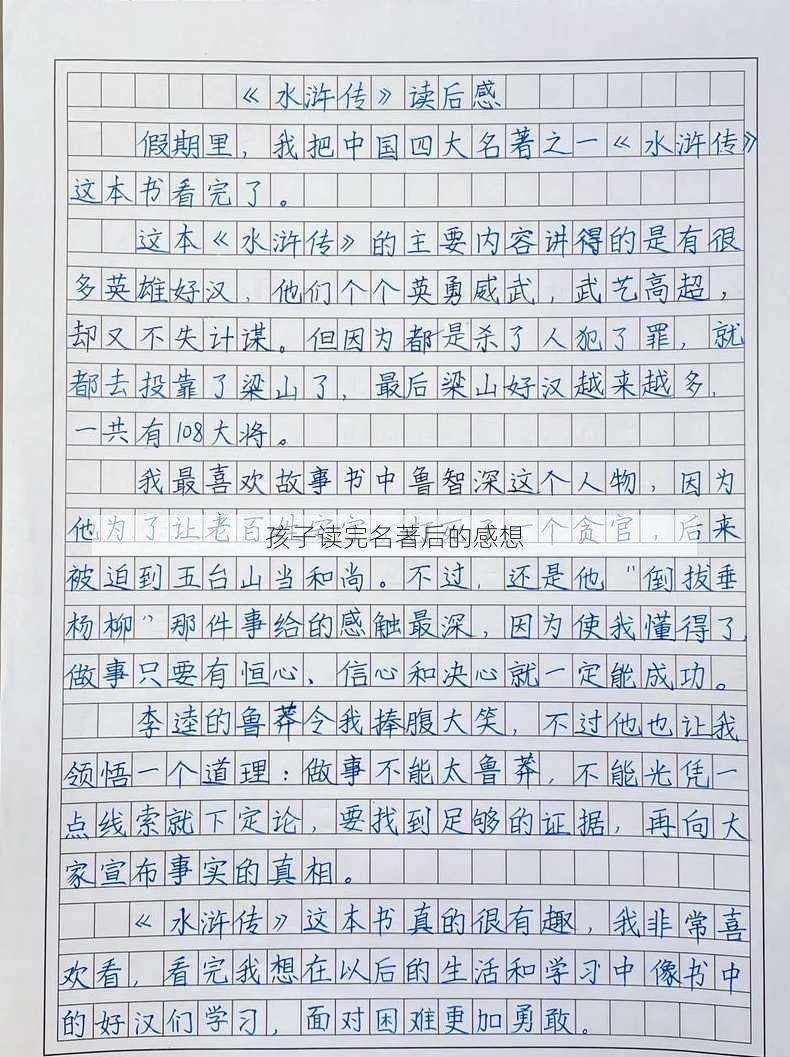 《水浒传》读后感
假期里，我把中国四大名著之一《水浒传》
这本书看完了。
这本《水浒传》的主要内容讲得的是有很
多英雄好汉，他们个个英勇威武，武艺高超，
却又不失计谋。但因为都是杀了人犯了罪，就
都去投靠了梁山了，最后梁山好汉越来越多，
一共有108大将。
我最喜欢故事书中鲁智深这个人物，因为
他为了让老百姓
个贪官，后来
孩子读完名著后的感想
被迫到五台山当和尚。不过，还是他"倒拔垂
杨柳"那件事给的感触最深，因为使我懂得了，
做事只要有恒心、信心和决心就一定能成功。
李逵的鲁莽令我捧腹大笑，不过他也让我
领悟一个道理：做事不能太鲁莽，不能光凭一
点线索就下定论，要找到足够的证据，再向大
家宣布事实的真相。
《水浒传》这本书真的很有趣，我非常喜
欢看，看完我想在以后的生活和学习中像书中
的好汉们学习，面对困难更加勇敢。